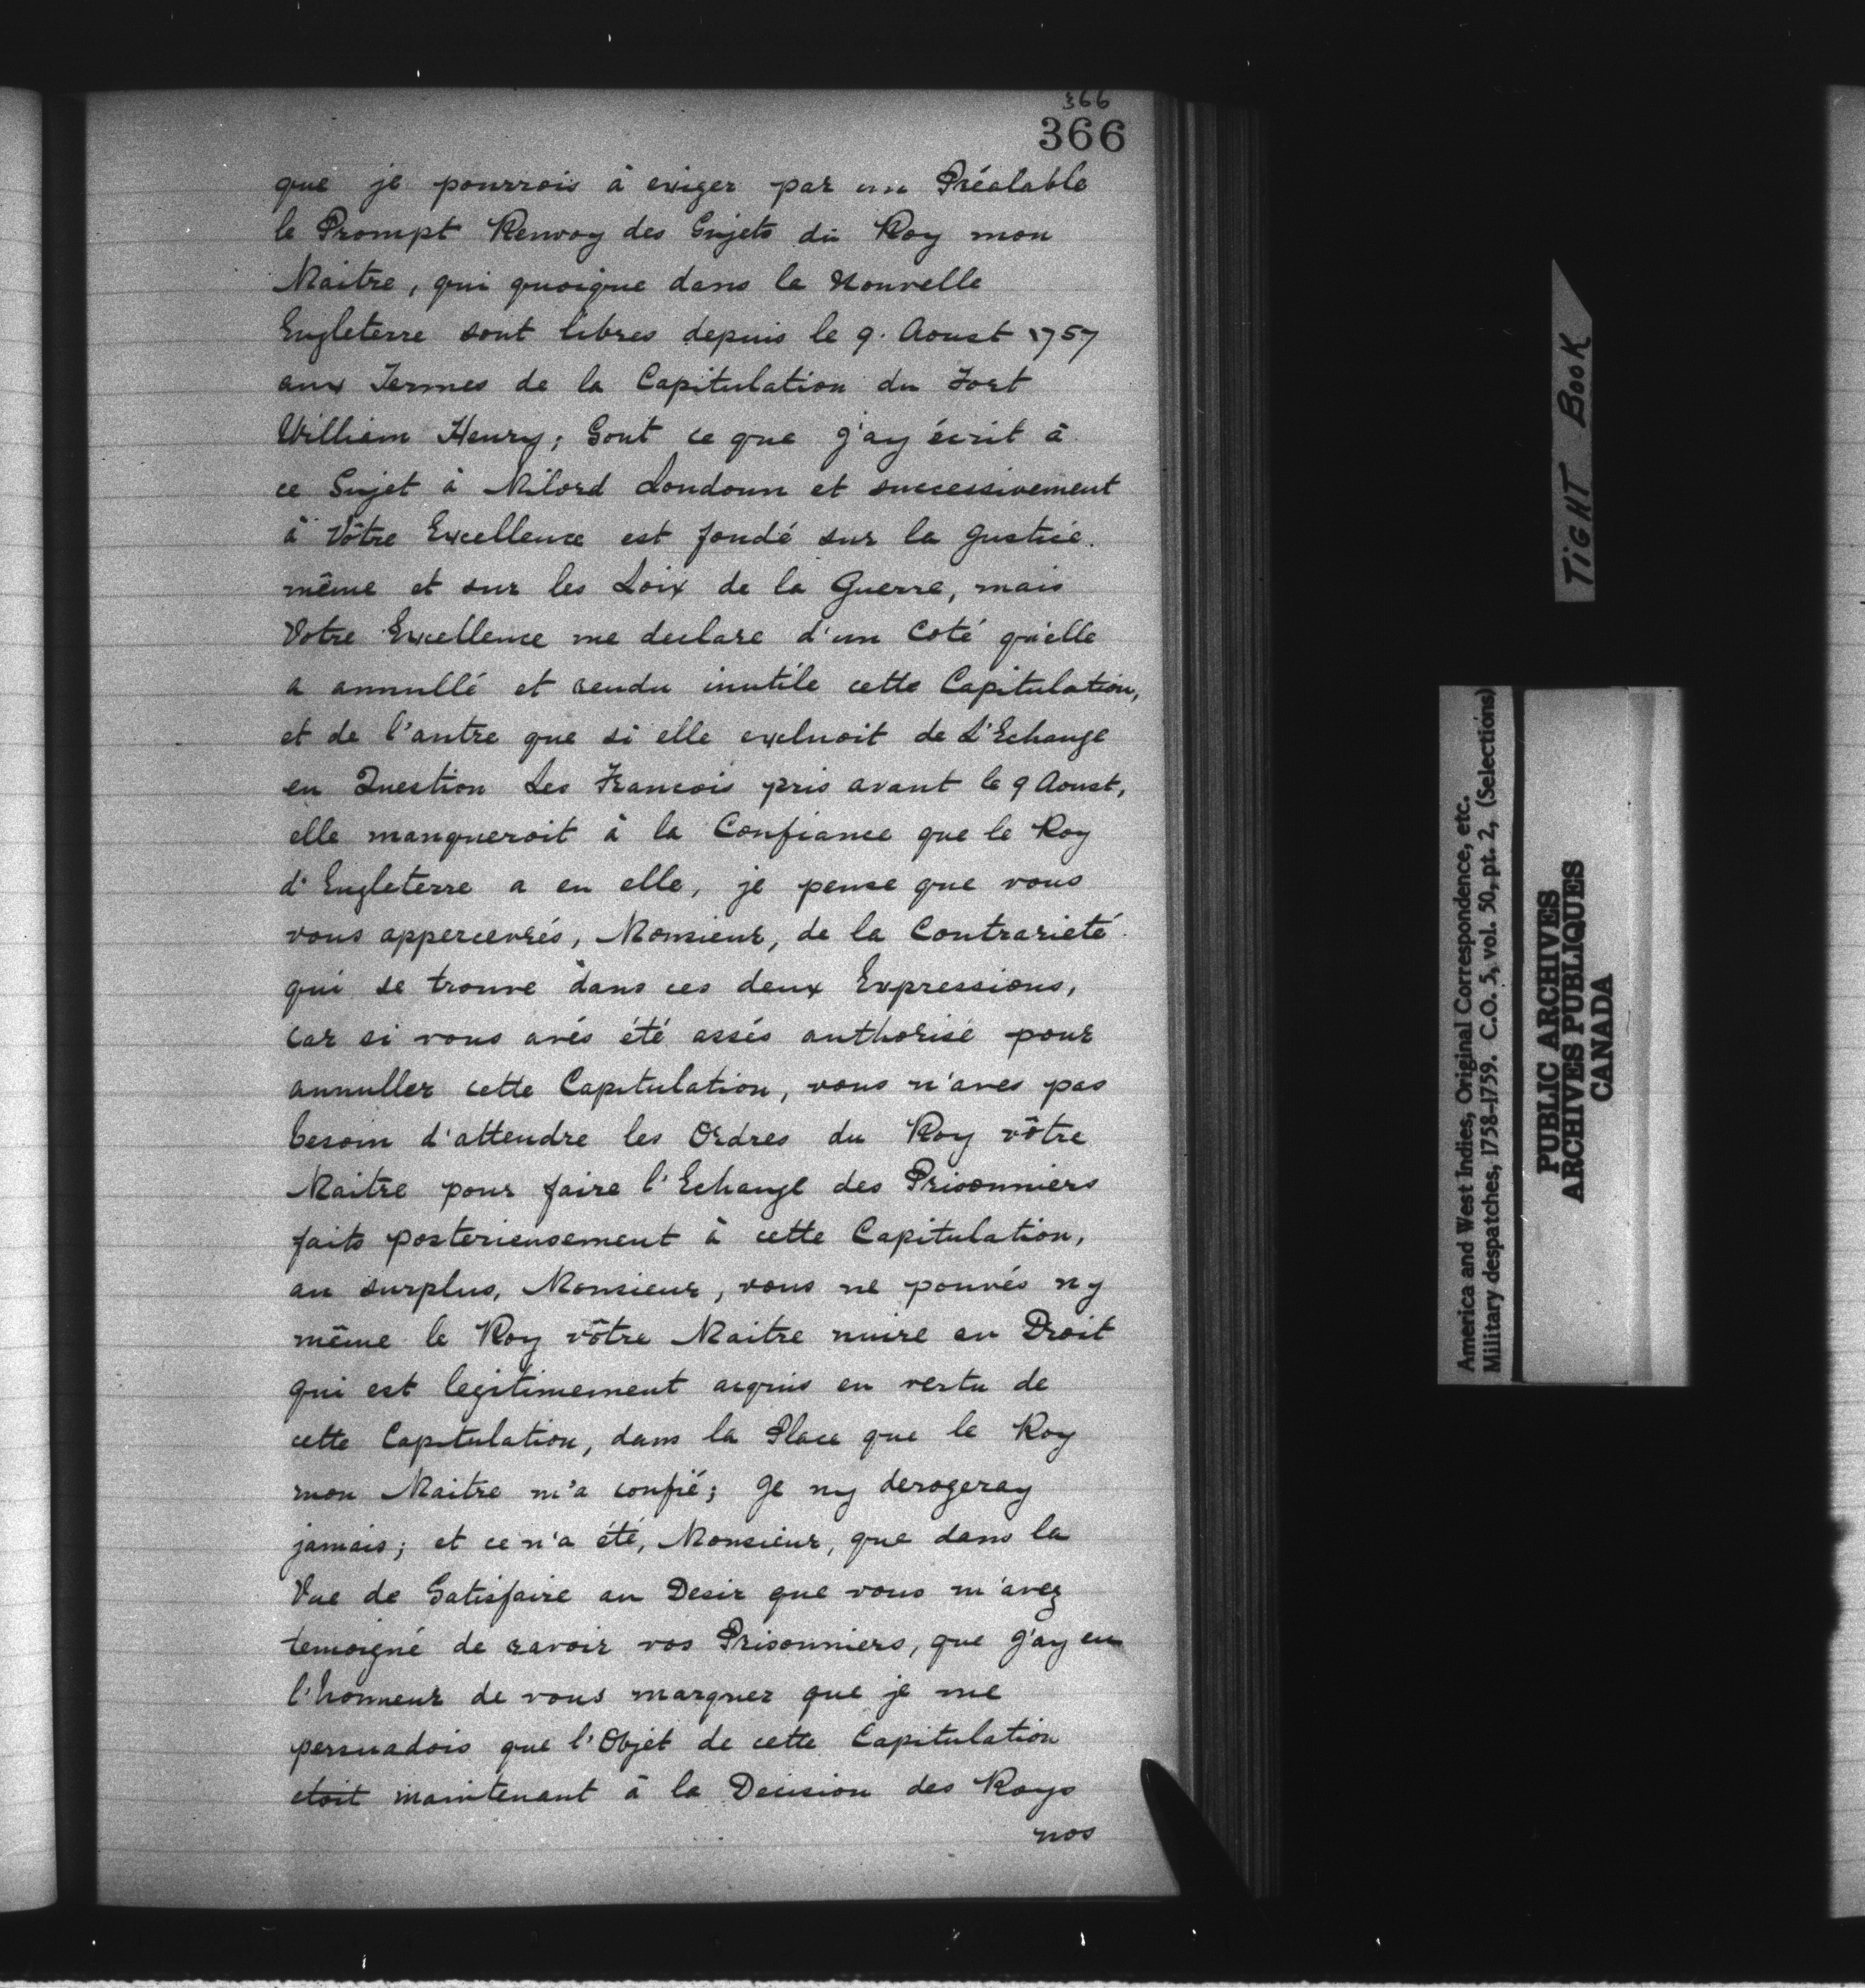 366
366
que je pourrois à exiger par un Préalable
le Prompt Renvoy des Sujets du Roy mon
Maitre, qui quoique dans la Nouvelle
Engleterre sont libres depuis le 9. Aoust 1757
aux Termes de la Capitulation du Fort
William Henry; Sont ce que j'ay écrit à
ce Sujet à Milord Loudoun et successivement
à Vôtre Excellence est fondé sur la Justice.
même et sur les Loix de la Guerre, mais
Votre Excellence me declare d'un Coté qu'elle
a annullé et rendu inutile cette Capitulation,
et de l'autre que si elle excluoit de L'Echange
en Question Les Francois pris avant le 9 Aoust,
elle manqueroit à la Confiance que le Roy
d'Engleterre a en elle, je pense que vous
vous appercevrés, Monsieur, de la Contrarieté
qui se trouve dans ces deux Expressions,
Car si vous avés été assés authorisé pour
annuller cette Capitulation, vous n'aves pas
besoin d'attendre les Ordres du Roy vôtre
Maitre pour faire l'Echange des Prisonniers
faits posterieusement à cette Capitulation,
au surplus, Monsieur, vous ne pouvés ny
même le Roy vôtre Maitre nuire au Droit
qui est legitimement acquis en vertu de
cette Capitulation, dans la Place que le Roy
mon Maitre m'a confié; Je ny derogeray
jamais; et ce n'a été, Monsieur, que dans la
Vue de Satisfaire au Desir que vous m'avez
temoigné de ravoir vos Prisonniers, que j'ay eu
l'honneur de vous marquer que je me
persuadois que l'Objet de cette Capitulation
etoit maintenant à la Decision des Roys
nos
TIGHT BOOK
America and West Indies, Original Correspondence, etc.
Military despatches, 1758-1759. C.O. 5, vol. 50, pt. 2, (Selections)
PUBLIC ARCHIVES
ARCHIVES PUBLIQUES
CANADA